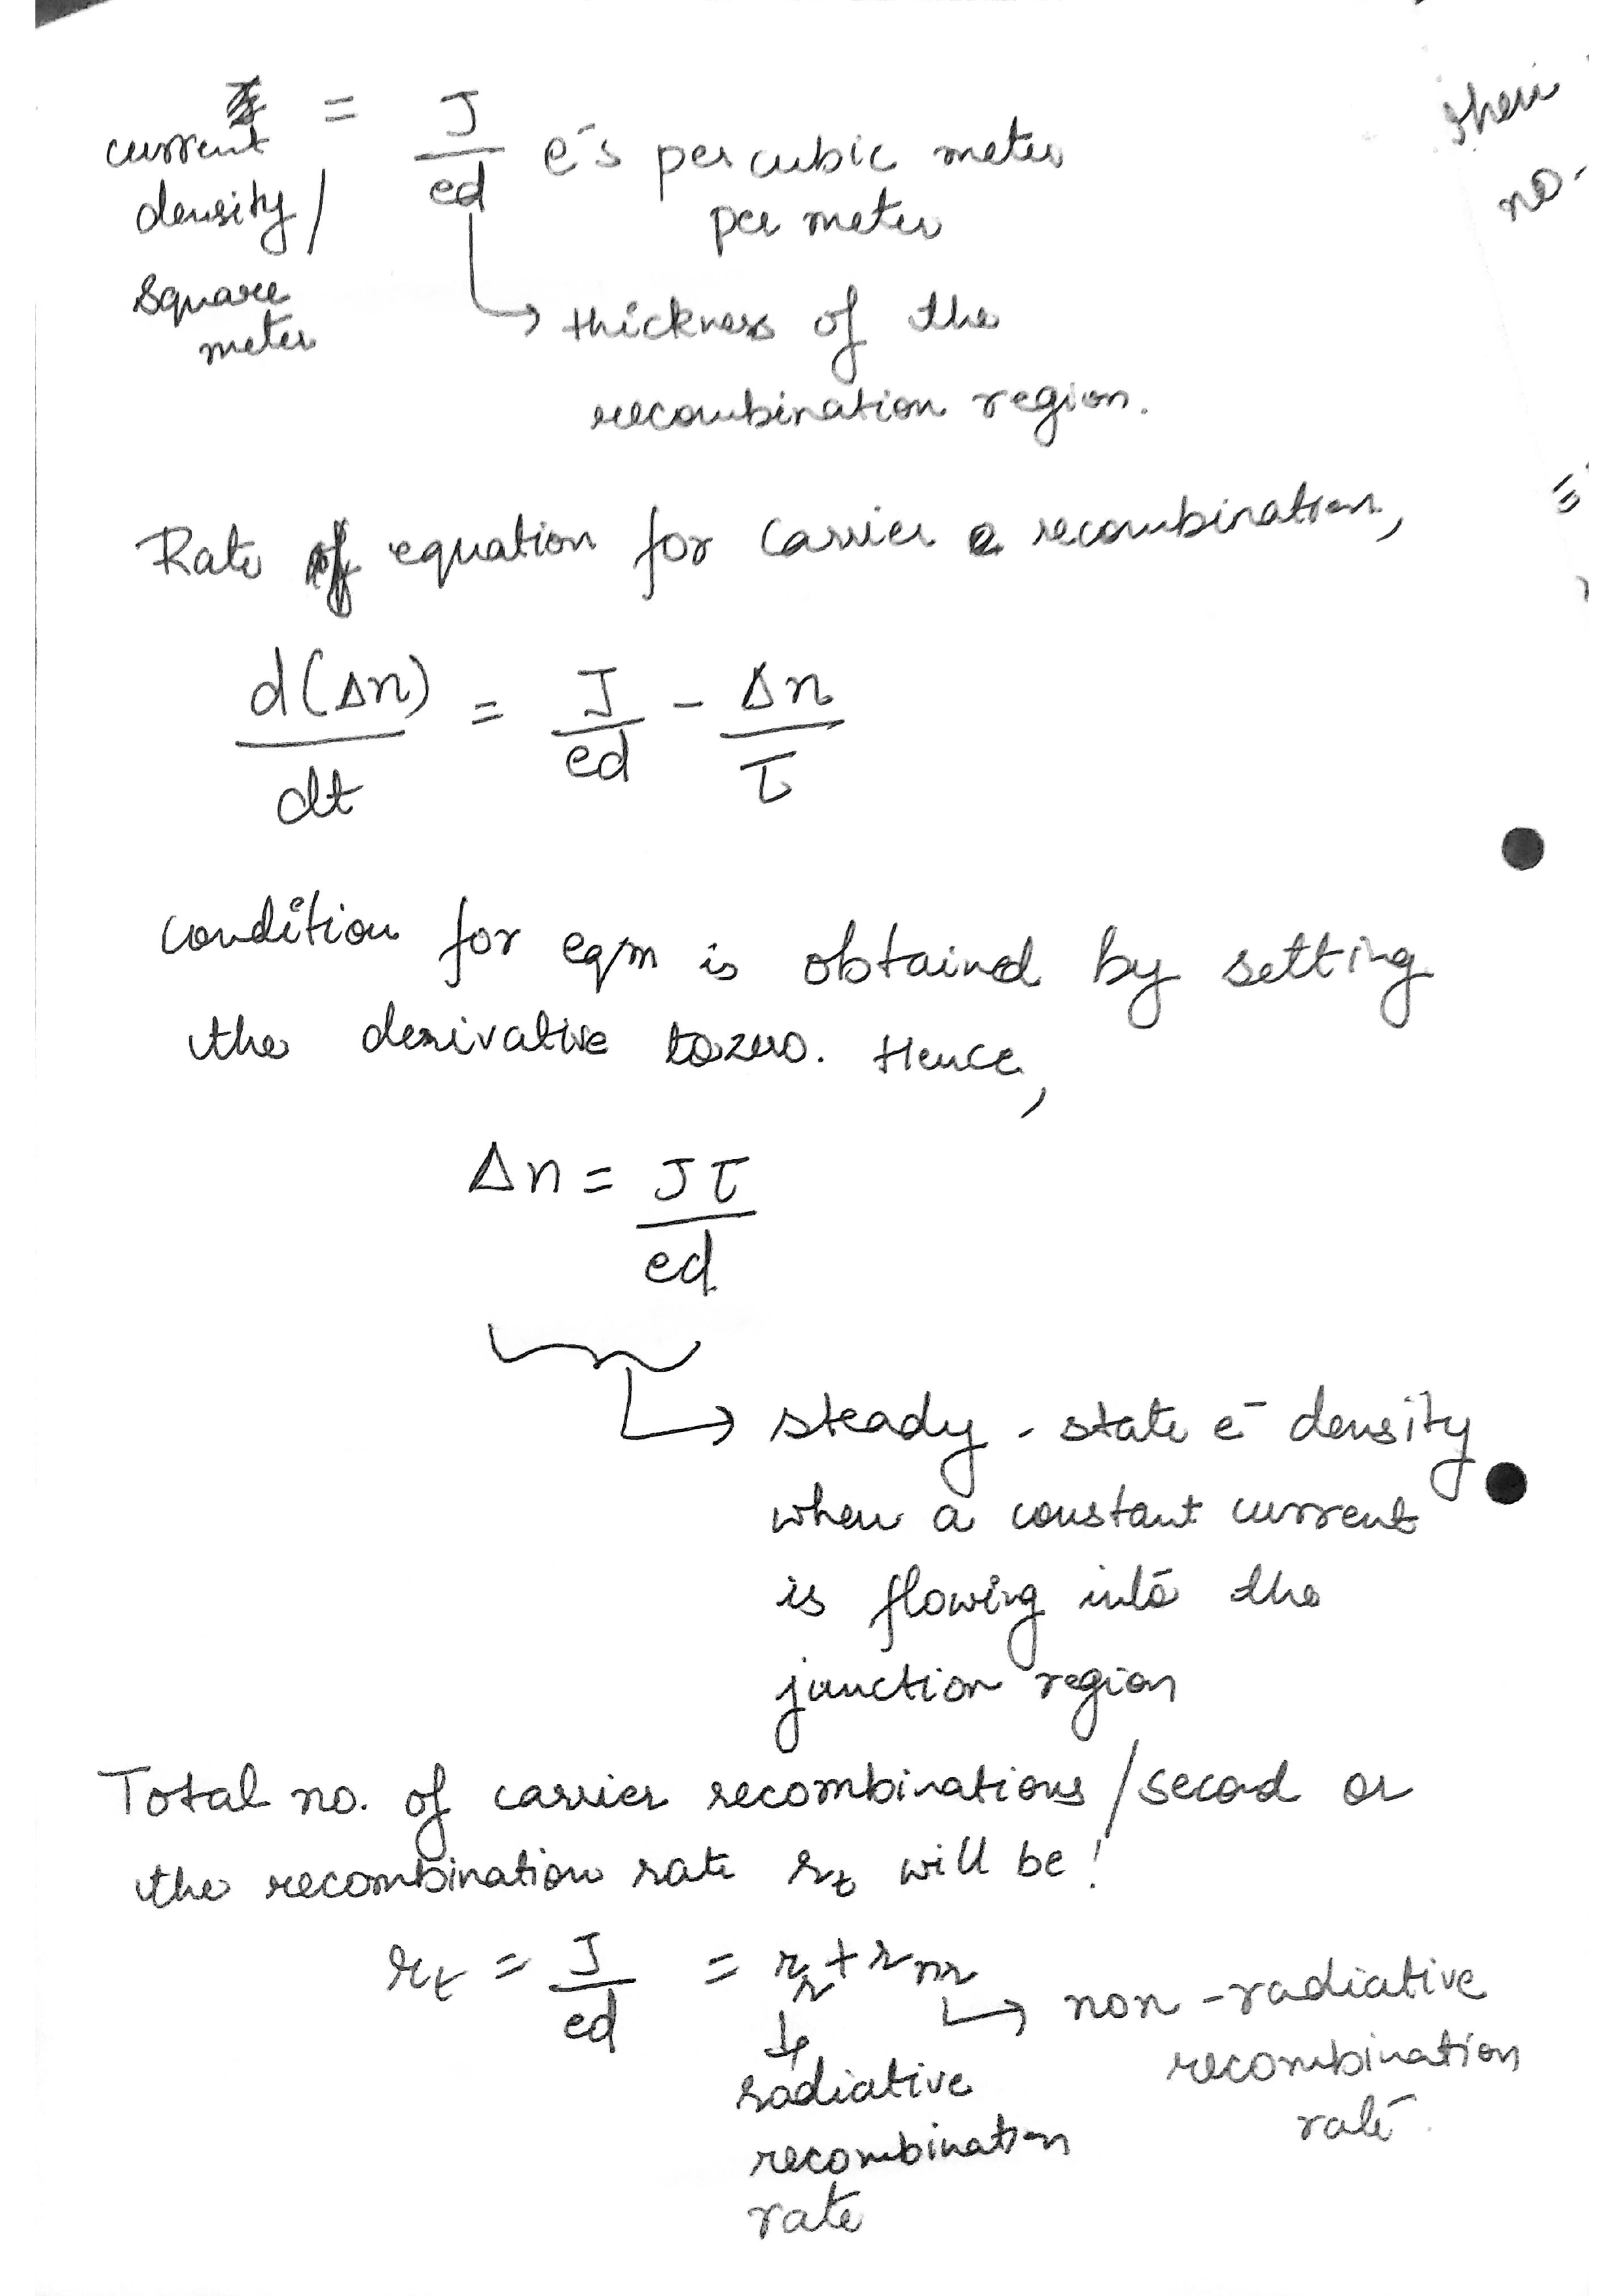 = J/ed e⁻s per cubic meter
current
density/
per meter
square
meter
→ thickness of the
recombination region.
Rate equation for carrier recombination,
d(Δn)/dt = J/ed - Δn/τ
condition for eqm is obtained by setting
the derivative to zero. Hence,
Δn = Jτ/ed
→ steady-state e⁻ density
when a constant current
is flowing into the
junction region
Total no. of carrier recombinations/secod or
the recombination rate r_t will be!
r_t = J/ed = r_r + r_nr
→ non-radiative
recombination
rate.
↓
radiative
recombination
rate
no.
=